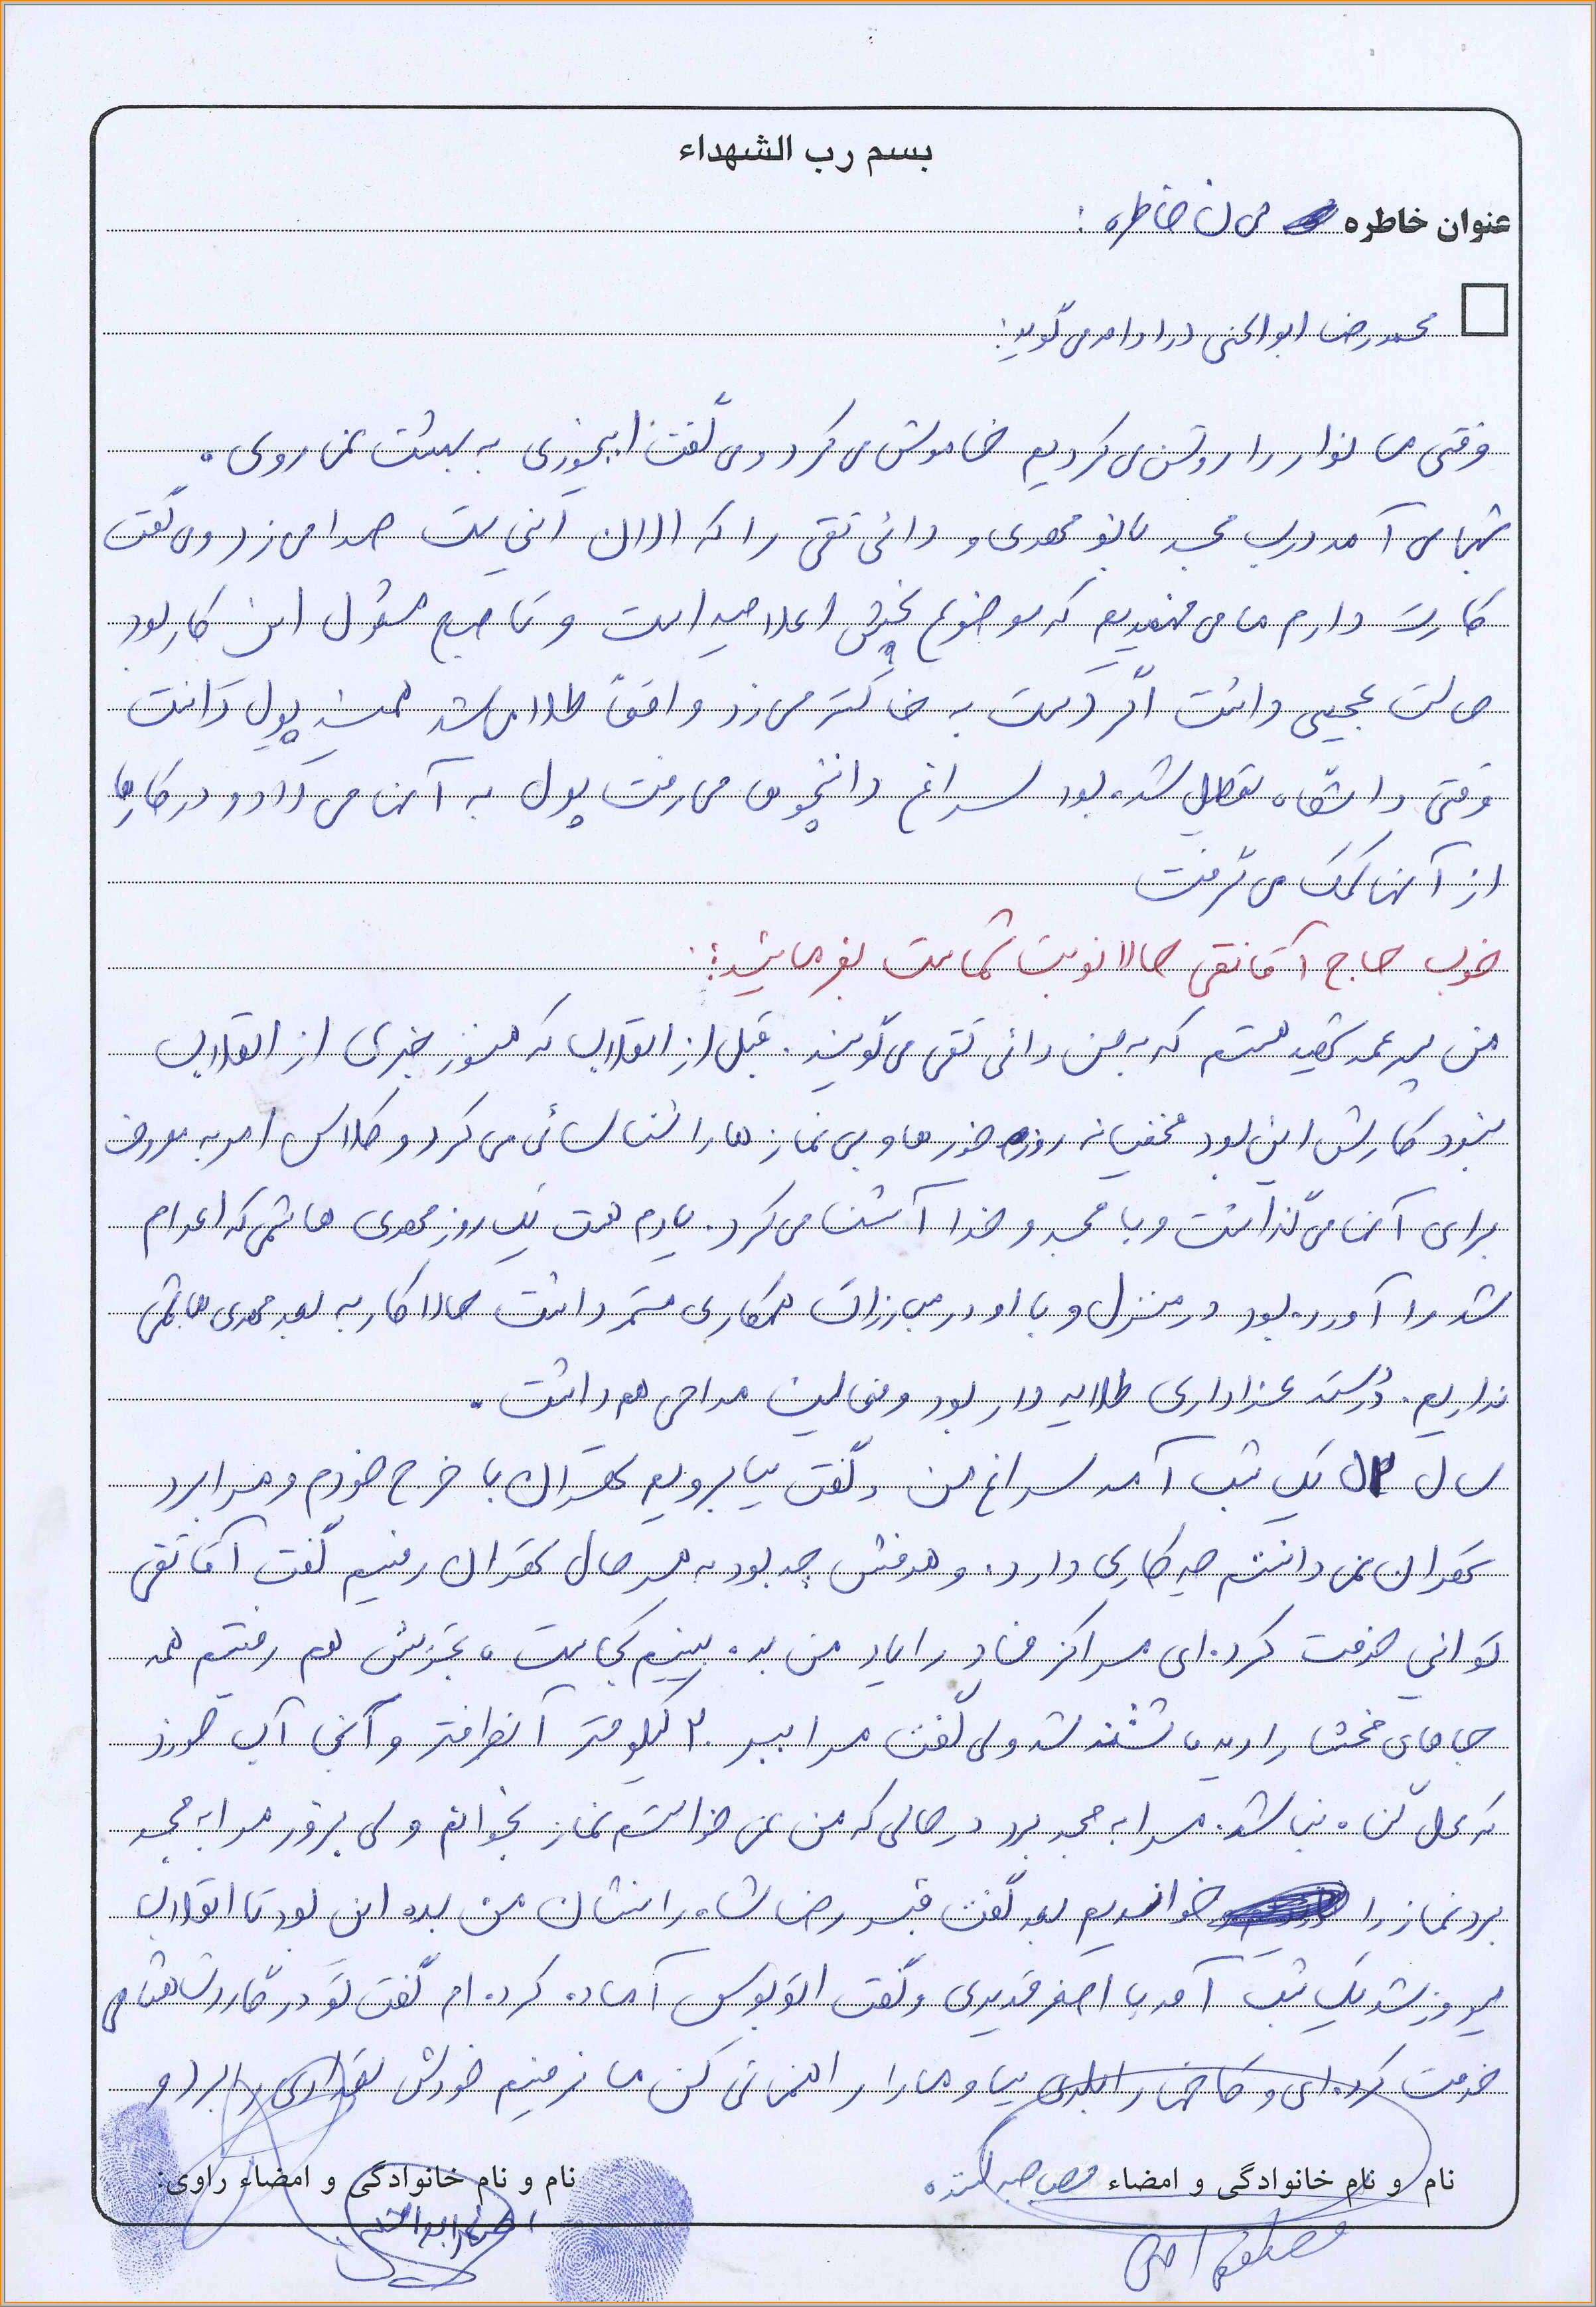 بسم رب الشهداء
عنوان خاطره متن خاطره :
محمدرضا ابوالحسنی در ادامه می گوید:
وقتی ما نوار را روشن می کردیم خاموش می کرد و می گفت اینجوری به بهشت نمی روی .
شبها می آمد درب مسجد بانو مهدی و دائی تقی را که الان اینجاست صدا می زد و می گفت
کارت دارم ما می فهمیدیم که موضوع پخش اعلامیه است و تا صبح مشغول این کار بود
حالت عجیبی داشت اگر دست به خاکستر می زد واقعاً طلا می شد همیشه پول داشت
وقتی دانشگاه تعطیل شده بود سراغ دانشجوها می رفت پول به آنها می داد و در کارها
از آنها کمک می گرفت
خوب حاج آقا تقی حالا نوبت شماست بفرمائید:
من پسر عمه شهید هستم که به من دائی تقی می گویند . قبل از انقلاب که هنوز خبری از انقلاب
نبود کارش این بود مخفیانه روزه خورها و بی نمازها را شناسائی می کرد و کلاس امر به معروف
برای آنها می گذاشت و با مسجد و خدا آشنا می کرد . یادم هست یک روز مهدی هاشمی که اعدام
شد را آورده بود در منزل و با او در مبارزات همکاری مستمر داشت حالا کار به بعد مهدی هاشمی
نداریم . در دسته عزاداری طلایه دار بود و فعالیت مداحی هم داشت .
سال ۵۲ یک شب آمد سراغ من و گفت بیا برویم تهران با خرج خودم و مرا برد
تهران نمی دانستم چه کاری دارد . و هدفش چه بود به هر حال تهران رفتیم گفت آقا تقی
تو اینجا خدمت کرده ای مراکز فساد را یاد من بده ببینم کجاست ، تجریش هم رفتیم همه
جاهای فحشا را دید ما تشنه شد ولی گفت مرا ببر ۲۰ کیلومتر آنطرفتر و آنجا آب خورد
که محل گناه نباشد . مرا به مسجد برد در حالی که من نمی خواستم نماز بخوانم ولی بزور مرا به مسجد
برد نماز را خواندیم بعد گفت قبر رضا شاه را نشان من بده این بود تا انقلاب
پیروز شد یک شب آمد با اصغر قدیری و گفت اتوبوس آماده کرده ام گفت تو در گارد شاهنشاهی
خدمت کرده ای و کاخها را بلدی بیا و ما را راهنمائی کن ما نرفتیم خودش تعدادی را برد و
نام و نام خانوادگی و امضاء مصاحبه کننده
نام و نام خانوادگی و امضاء راوی: